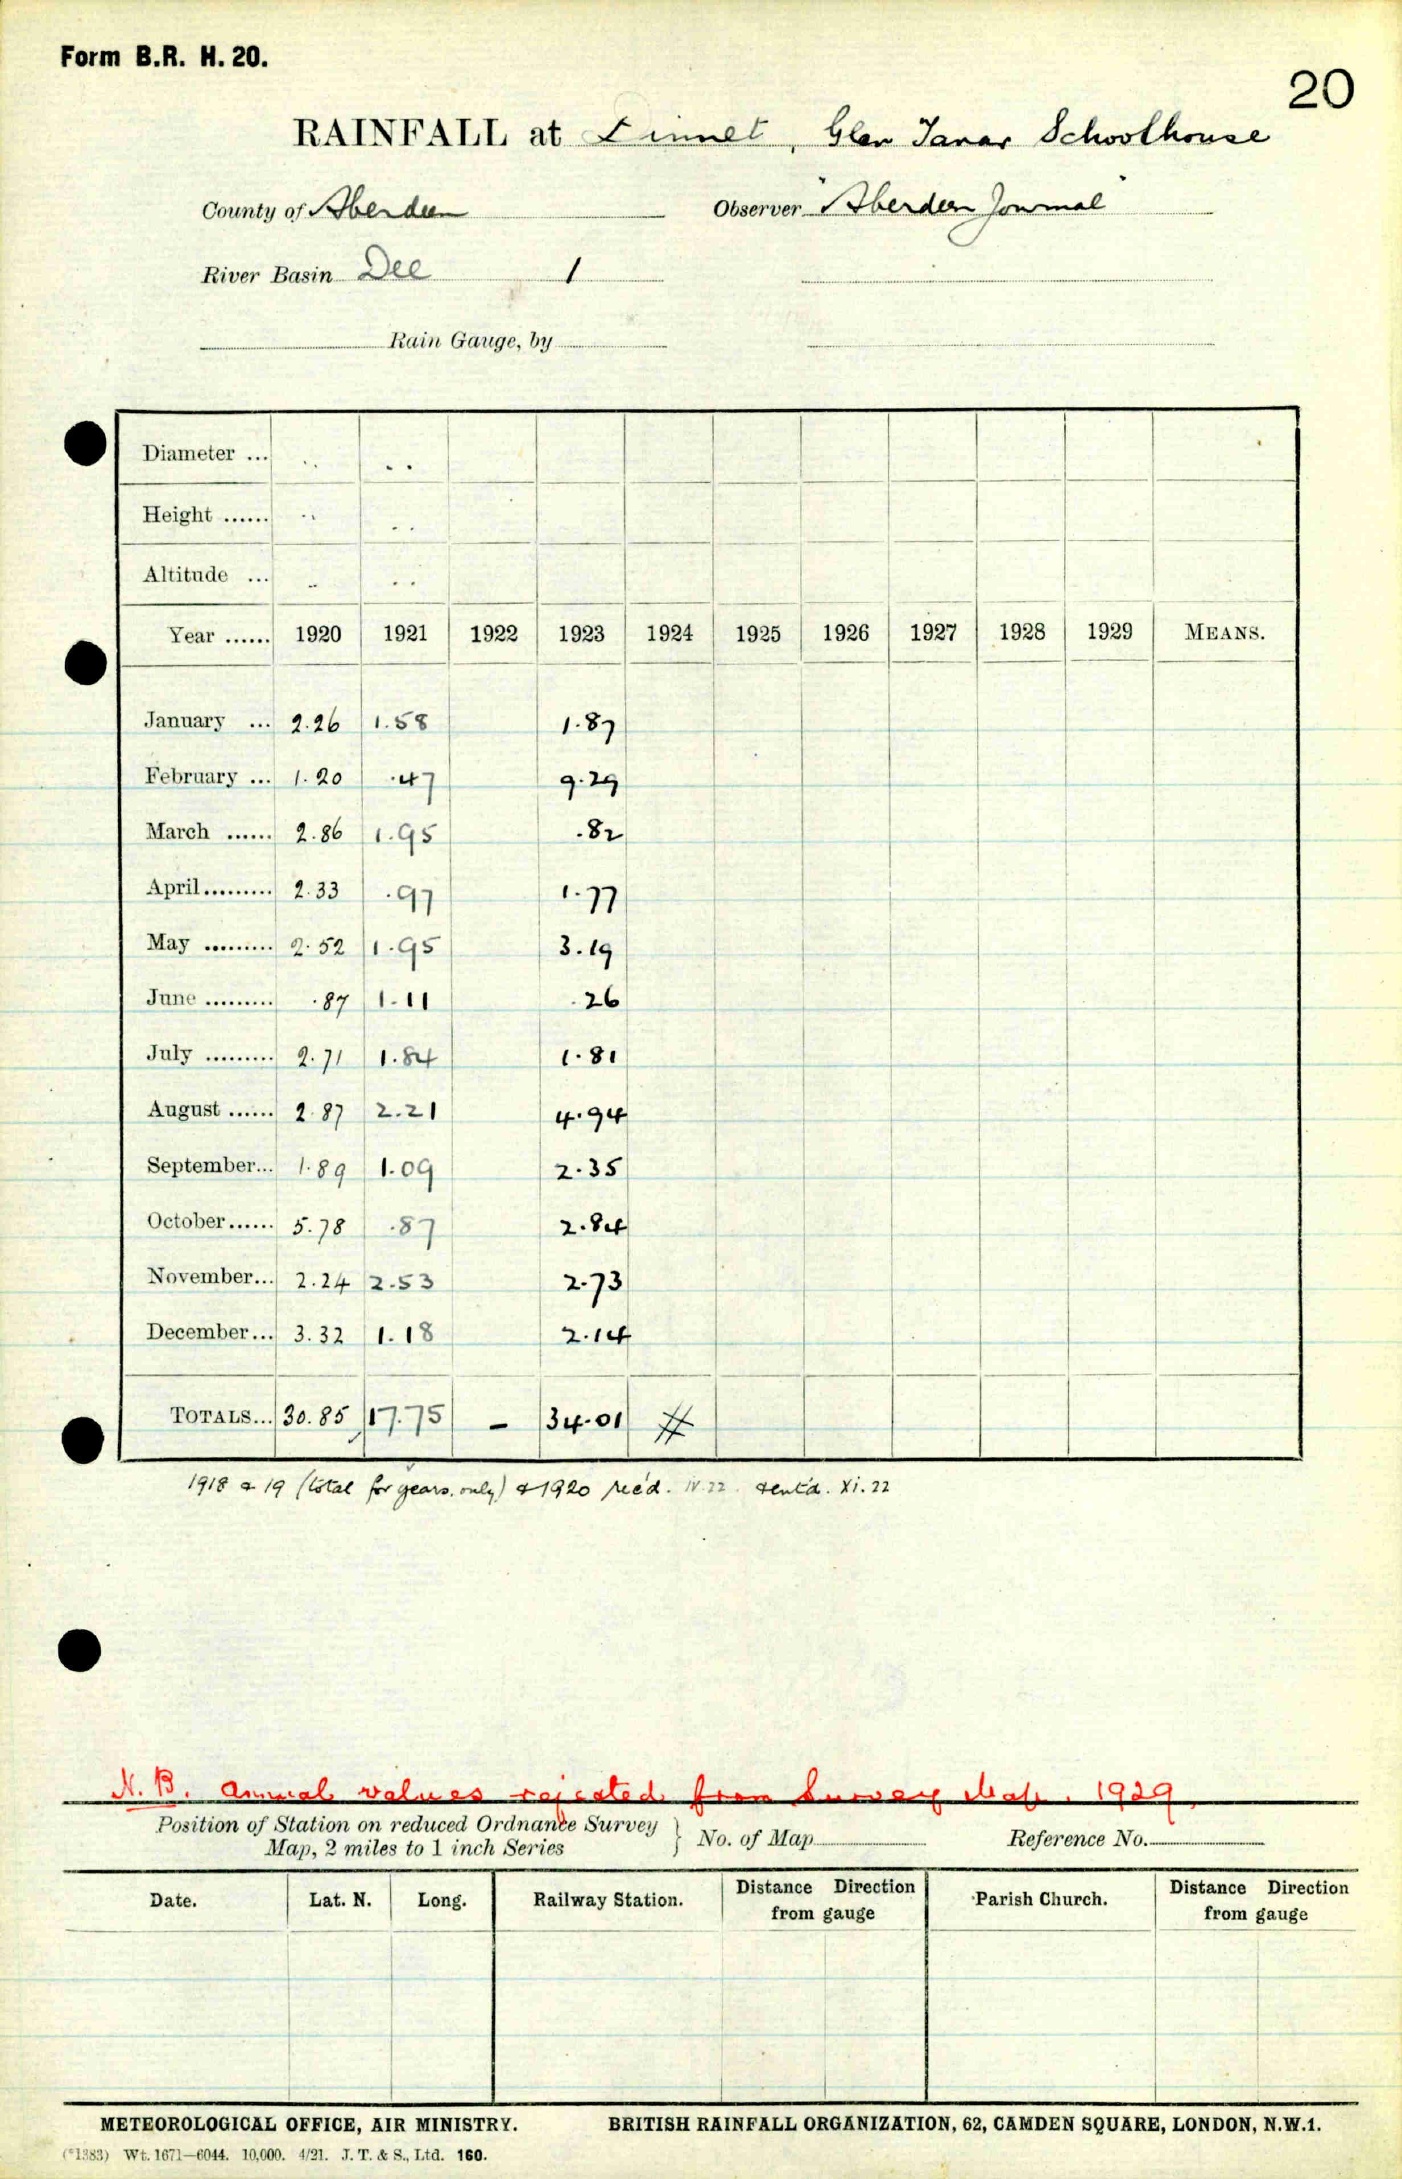 Form B.R. H. 20.
20
RAINFALL at Dinnet, Glen Tanar Schoolhouse
County of Aberdeen Observer "Aberdeen Journal"
River Basin Dee 1
Rain Gauge, by
Diameter ... .. ..
Height ...... .. ..
Altitude ... .. ..
Year ...... 1920 1921 1922 1923 1924 1925 1926 1927 1928 1929 MEANS.
January ... 2.26 1.58 1.87
February ... 1.20 .47 9.29
March ...... 2.86 1.95 .82
April......... 2.33 .97 1.77
May ......... 2.52 1.95 3.19
June ......... .87 1.11 .26
July ......... 2.71 1.84 1.81
August ...... 2.87 2.21 4.94
September... 1.89 1.09 2.35
October...... 5.78 .87 2.84
November... 2.24 2.53 2.73
December... 3.32 1.18 2.14
TOTALS... 30.85 17.75 - 34.01 #
1918 & 19 (total for years only) & 1920 rec'd. IV.22. & ent'd. XI.22
N.B. Annual values rejected from Survey Map. 1929.
Position of Station on reduced Ordnance Survey
Map, 2 miles to 1 inch Series } No. of Map Reference No.
Date. Lat. N. Long. Railway Station. Distance Direction from gauge Parish Church. Distance Direction from gauge
METEOROLOGICAL OFFICE, AIR MINISTRY. BRITISH RAINFALL ORGANIZATION, 62, CAMDEN SQUARE, LONDON, N.W.1.
(*1383) Wt. 1671—6044. 10,000. 4/21. J. T. & S., Ltd. 160.